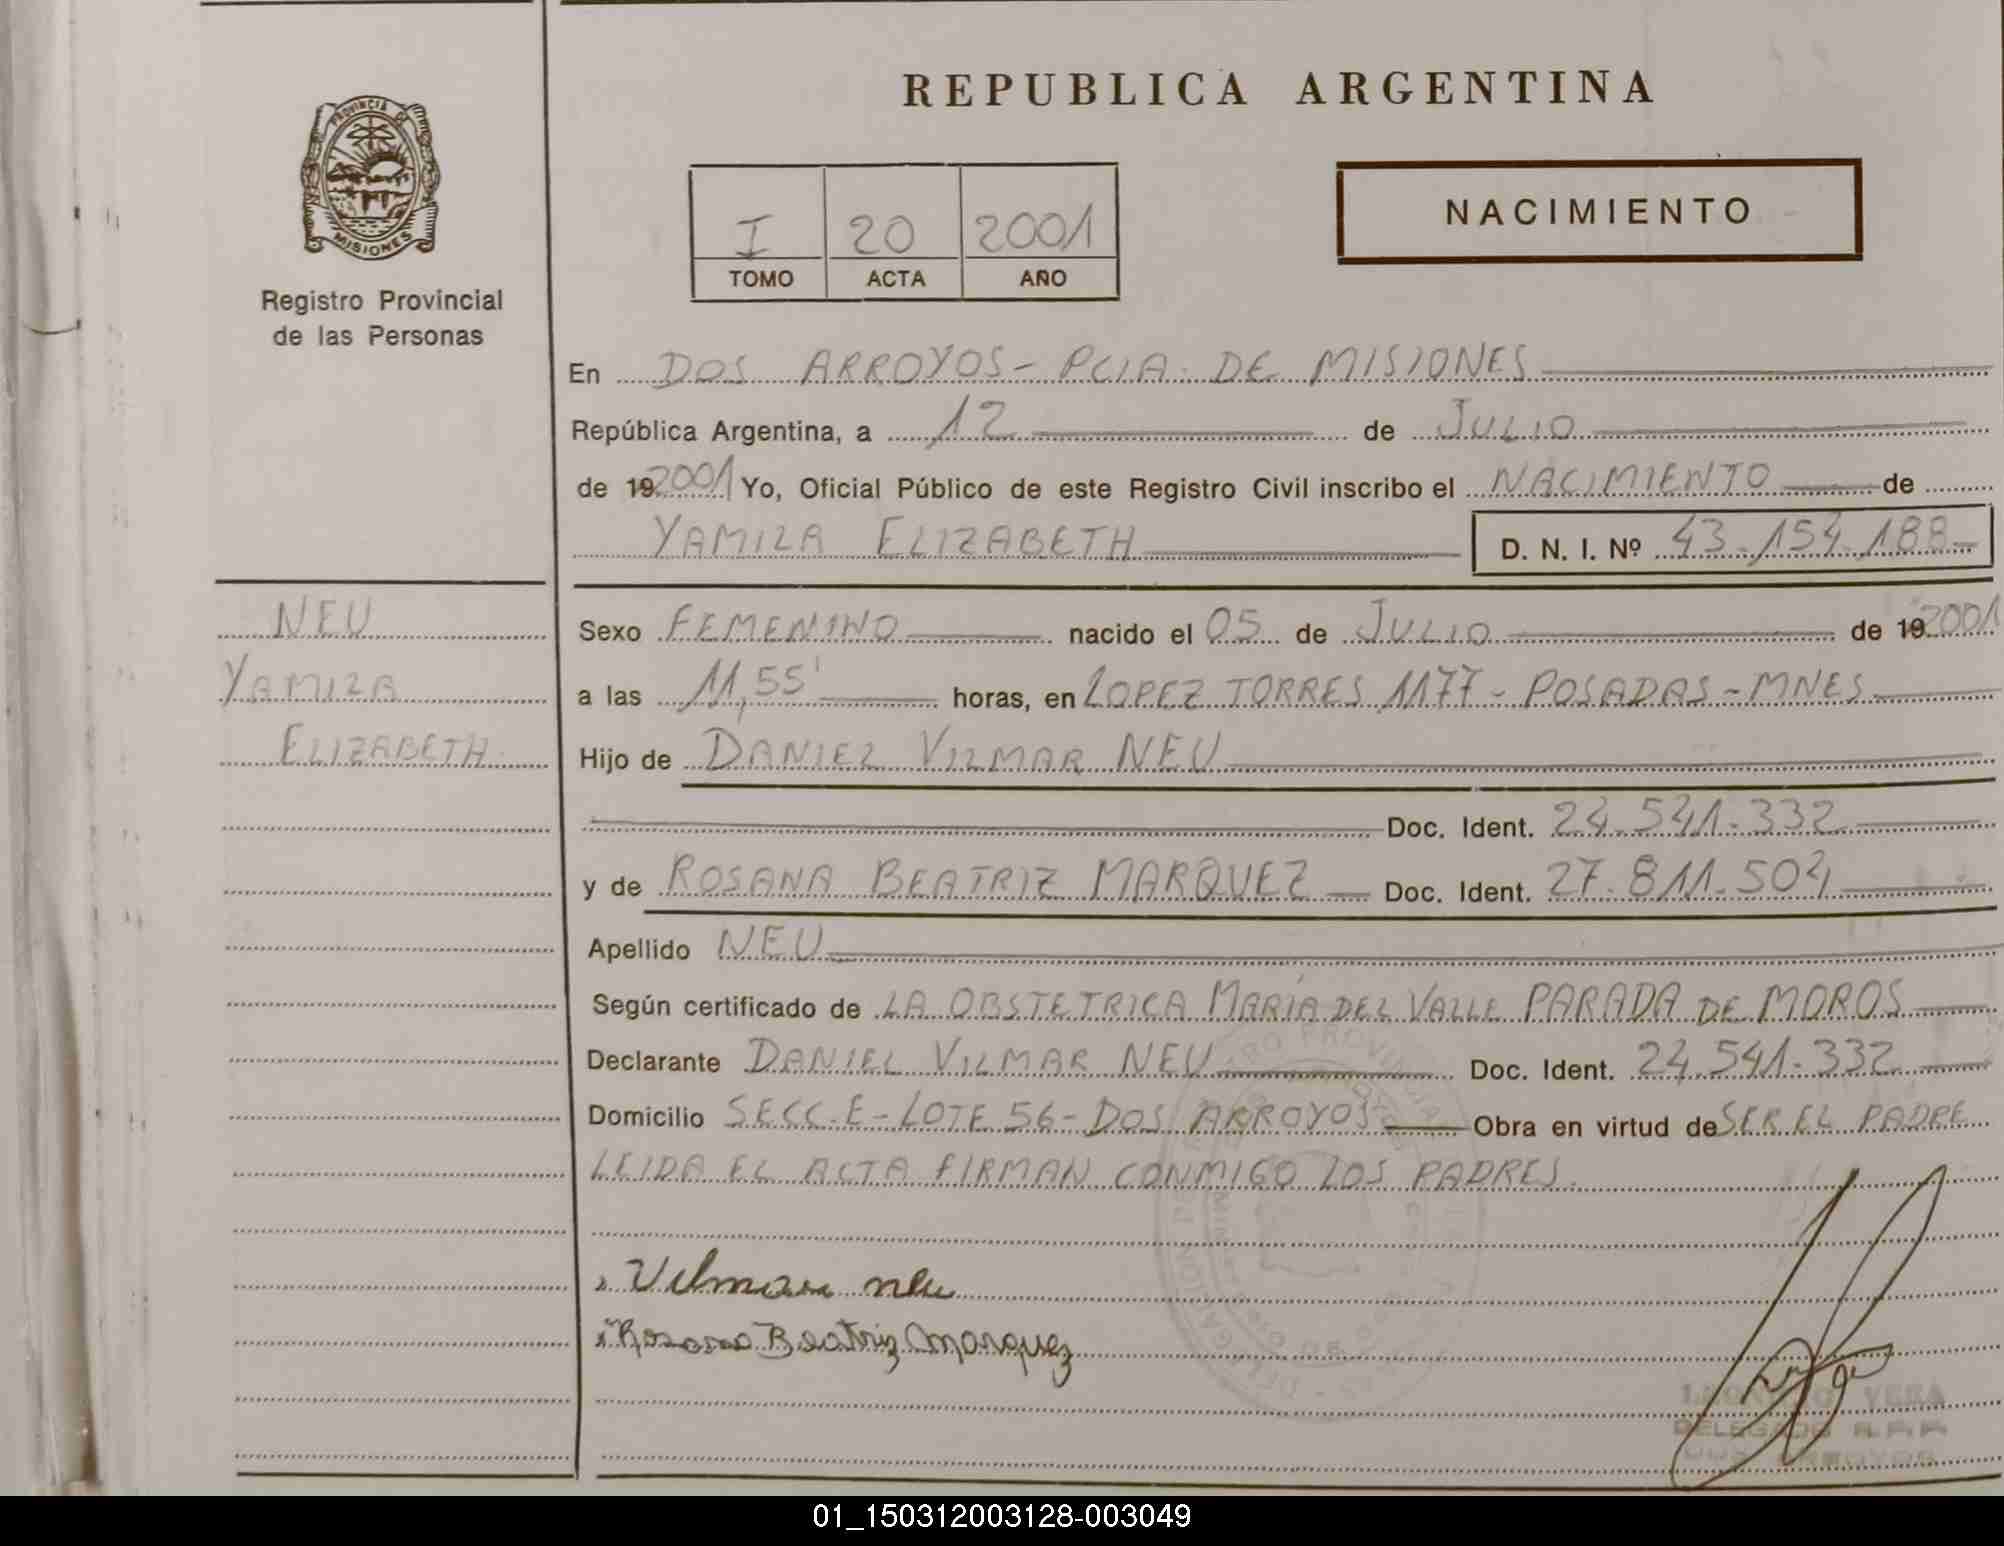 REPUBLICA ARGENTINA
PROVINCIA DE
MISIONES
Registro Provincial
de las Personas
I 20 2001
TOMO ACTA AÑO
NACIMIENTO
En DOS ARROYOS - PCIA. DE MISIONES
República Argentina, a 12 de JULIO
de 19 2001 Yo, Oficial Público de este Registro Civil inscribo el NACIMIENTO de
YAMILA ELIZABETH D. N. I. Nº 43.154.188-
NEU
YAMILA
ELIZABETH
Sexo FEMENINO nacido el 05 de JULIO de 19 2001
a las 11,55' horas, en LOPEZ TORRES 1177 - POSADAS - MNES
Hijo de DANIEL VILMAR NEU
Doc. Ident. 24.541.332
y de ROSANA BEATRIZ MARQUEZ Doc. Ident. 27.811.504
Apellido NEU
Según certificado de LA OBSTETRICA MARÍA DEL VALLE PARADA DE MOROS
Declarante DANIEL VILMAR NEU Doc. Ident. 24.541.332
Domicilio SECC.E - LOTE 56 - DOS ARROYOS Obra en virtud de SER EL PADRE
LEIDA EL ACTA FIRMAN CONMIGO LOS PADRES.
Vilmar neu
Rosana Beatriz Marquez
VERA
DELEGADO
DOS ARROYOS
01_150312003128-003049